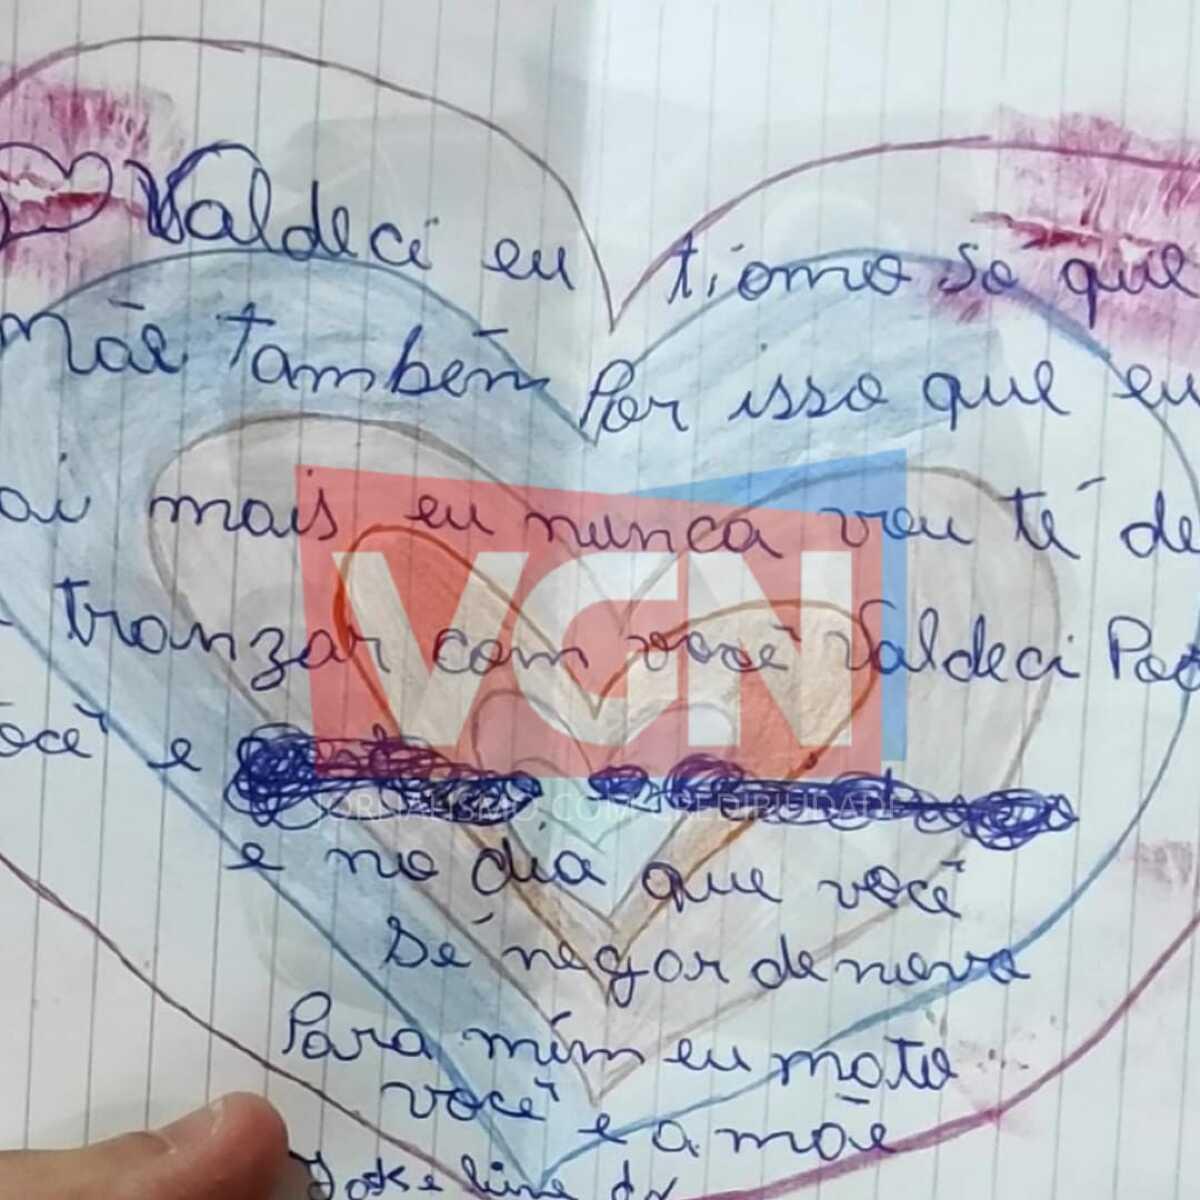 Valdeci eu tiamo só que
mãe também Por isso que eu
ai mais eu nunca vou té de
tranzar com você Valdeci Por
você e
e no dia que você
sé negar de novo
Para mim eu mato
você e a mãe
VGN
JORNALISMO COM CREDIBILIDADE